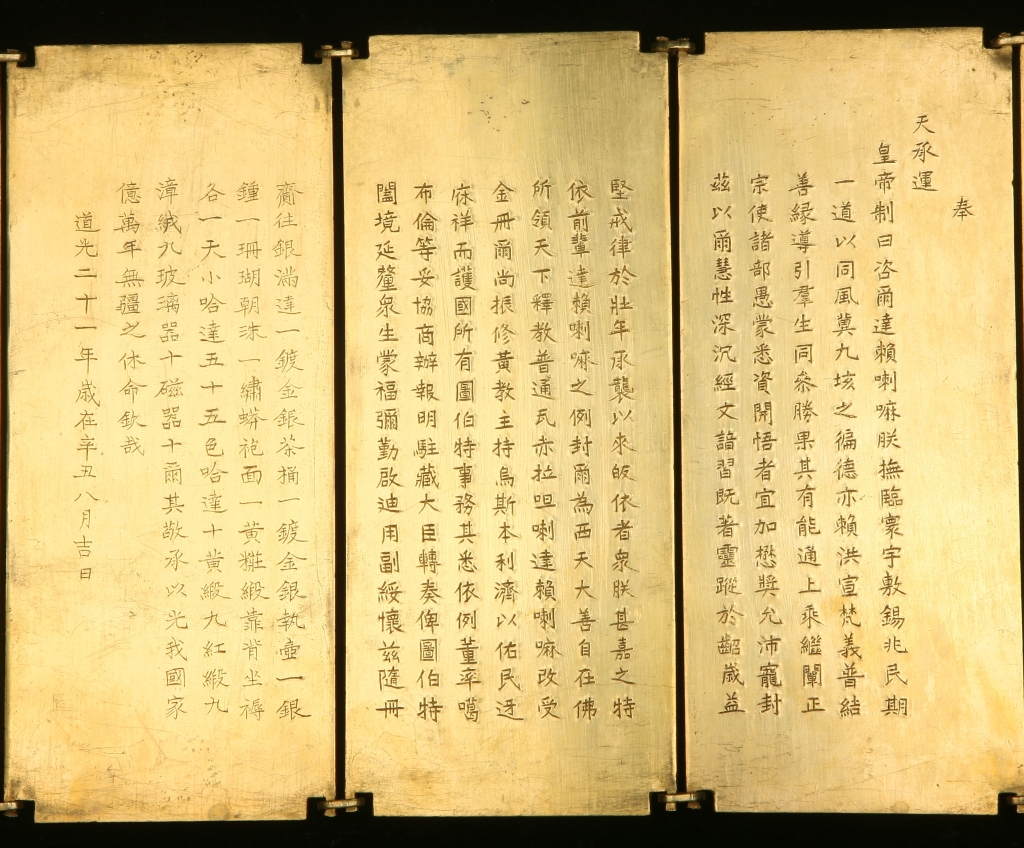 奉
天承運
皇帝制曰咨爾達賴喇嘛朕撫臨寰宇敷錫兆民期
一道以同風冀九垓之徧德亦賴洪宣梵義普結
善緣導引羣生同參勝果其有能通上乘繼闡正
宗使諸部愚蒙悉資開悟者宜加懋獎允沛寵封
茲以爾慧性深沉經文諳習既著靈蹤於齠歲益
堅戒律於壯年承襲以來皈依者衆朕甚嘉之特
依前輩達賴喇嘛之例封爾為西天大善自在佛
所領天下釋教普通瓦赤拉呾喇達賴喇嘛改受
金冊爾尚振修黃教主持烏斯本利濟以佑民迓
庥祥而護國所有圖伯特事務其悉依例董率噶
布倫等妥協商辦報明駐藏大臣轉奏俾圖伯特
闔境延釐衆生蒙福彌勤啟迪用副綏懷茲隨冊
齎往銀滿達一鍍金銀茶桶一鍍金銀執壺一銀
鍾一珊瑚朝洙一繡蟒袍面一黃糚緞靠背坐褥
各一大小哈達五十五色哈達十黃緞九紅緞九
漳絨九玻璃器十磁器十爾其敬承以光我國家
億萬年無疆之休命欽哉
道光二十一年歲在辛丑八月吉日